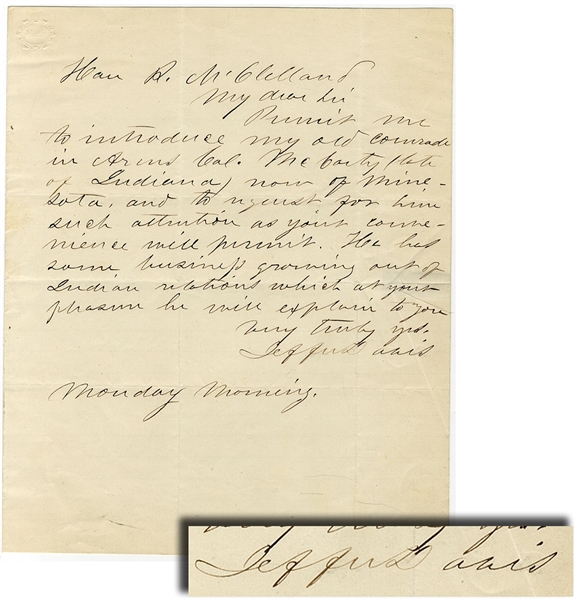 Hon R. McClelland
My dear Sir
Permit me
to introduce my old comrade
in Arms Col. McCarty (late
of Indiana) now of Mine-
sota, and to request for him
such attention as your conve-
nience will permit. He has
some business growing out of
Indian relations which at your
pleasure he will explain to you
very truly yrs.
Jeffer Davis
Monday Morning.
Jeffer Davis